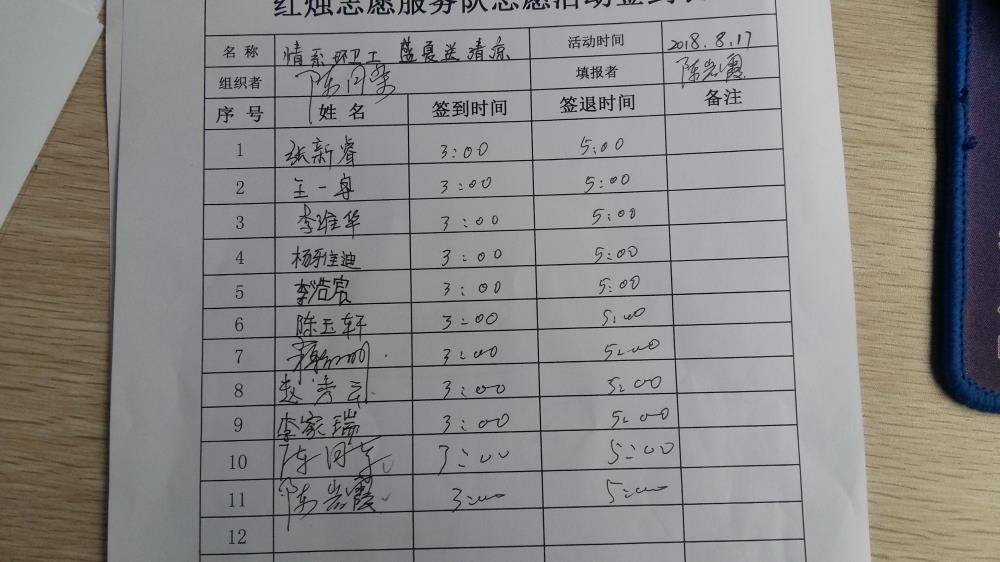 红烛志愿服务队志愿活动签到表
名 称 情系环卫工 盛夏送清凉 活动时间 2018.8.17
组织者 陈同 填报者 陈岩霞
序 号 姓 名 签到时间 签退时间 备注
1 张新睿 3:00 5:00
2 王一舟 3:00 5:00
3 李维华 3:00 5:00
4 杨雅迪 3:00 5:00
5 李浩宾 3:00 5:00
6 陈玉轩 3:00 5:00
7 3:00 5:00
8 赵秀云 3:00 5:00
9 李家瑞 3:00 5:00
10 陈同 3:00 5:00
11 陈岩霞 3:00 5:00
12